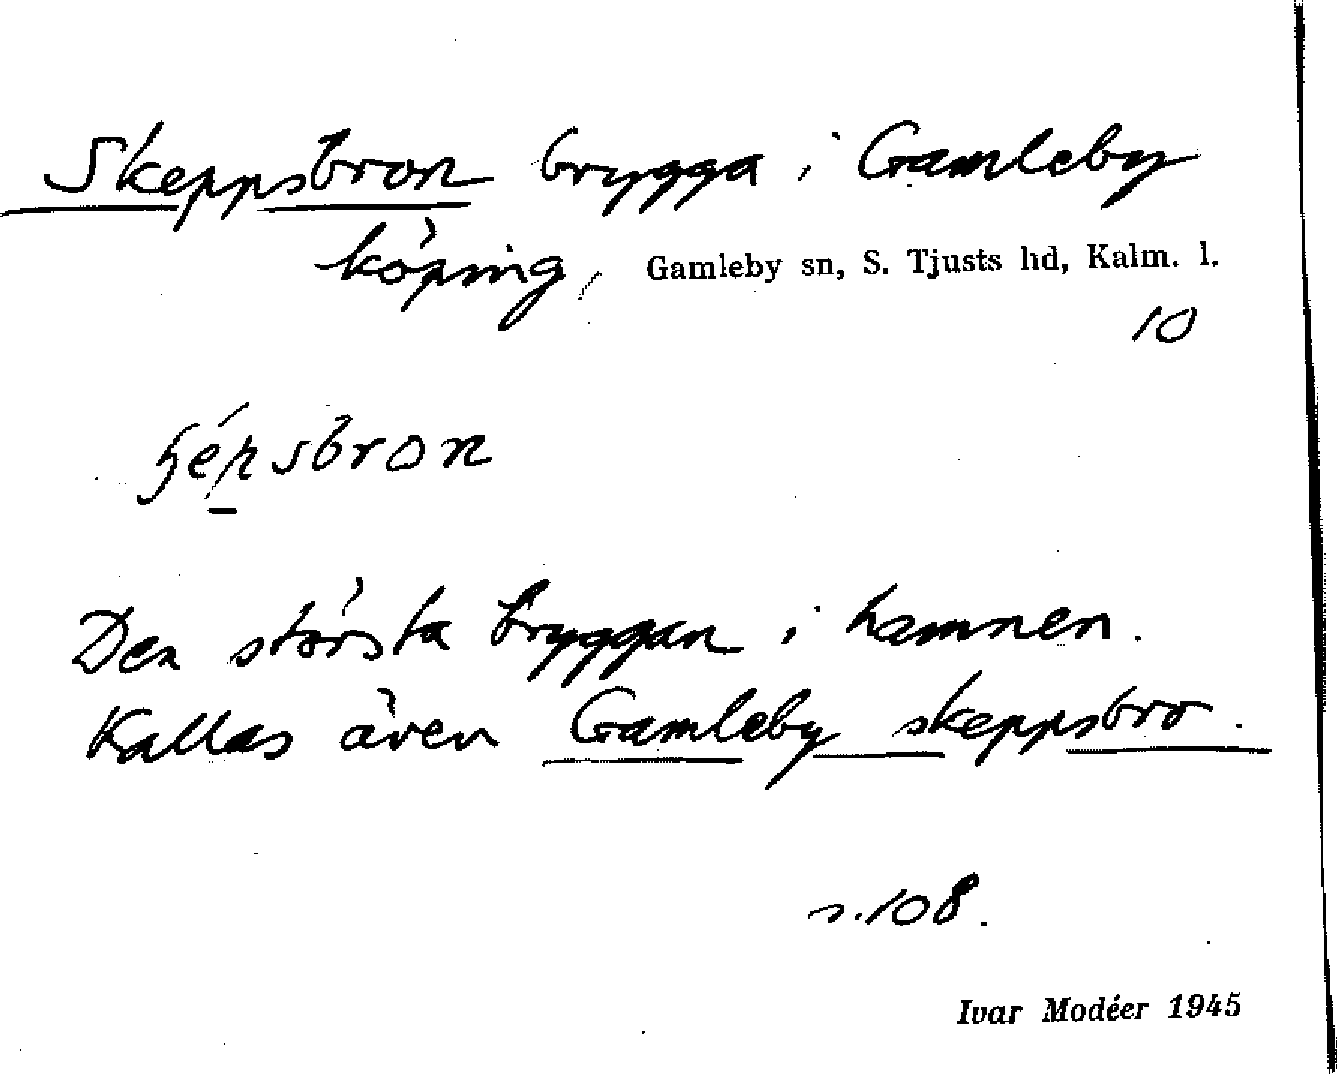 Skeppsbron brygga i Gamleby
köping, Gamleby sn, S. Tjusts hd, Kalm. l.
10
Den största bryggan i hamnen.
Kallas även Gamleby skeppsbro.
s. 108.
Ivar Modéer 1945